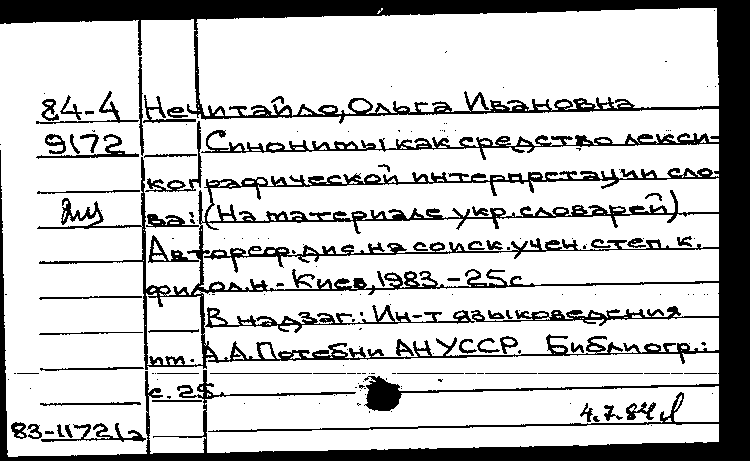 84-4 Нечитайло, Ольга Ивановна
9172 Синонимы как средство лекси-
кографической интерпретации сло-
ва: (На материале укр. словарей).
Автореф. дис. на соиск. учен. степ. к.
филол. н. - Киев, 1983. - 25 с.
В надзаг.: Ин-т языковедения
им. А.А. Потебни АН УССР. Библиогр.:
с. 25.
4.7.84
83-11721а